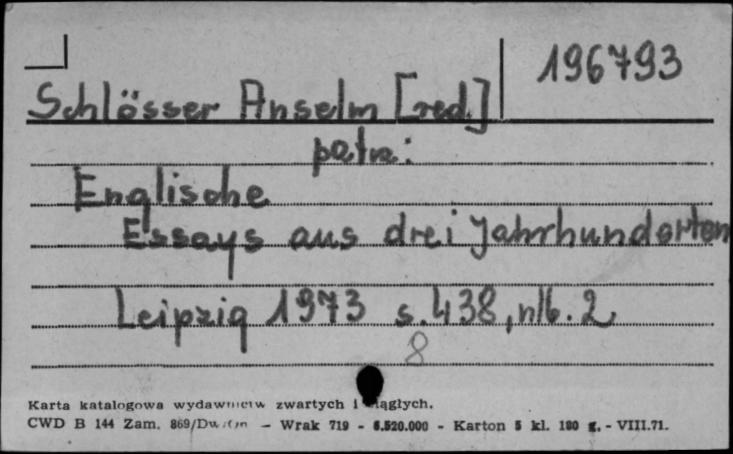 196793
Schlösser Anselm [red.]
patrz:
Englische
Essays aus drei Jahrhunderten
Leipzig 1973 s. 438, nlb. 2
8
Karta katalogowa wydawnictw zwartych i ciągłych.
CWD B 144 Zam. 869/ – Wrak 719 - 6.520.000 - Karton 5 kl. 180 g. - VIII.71.